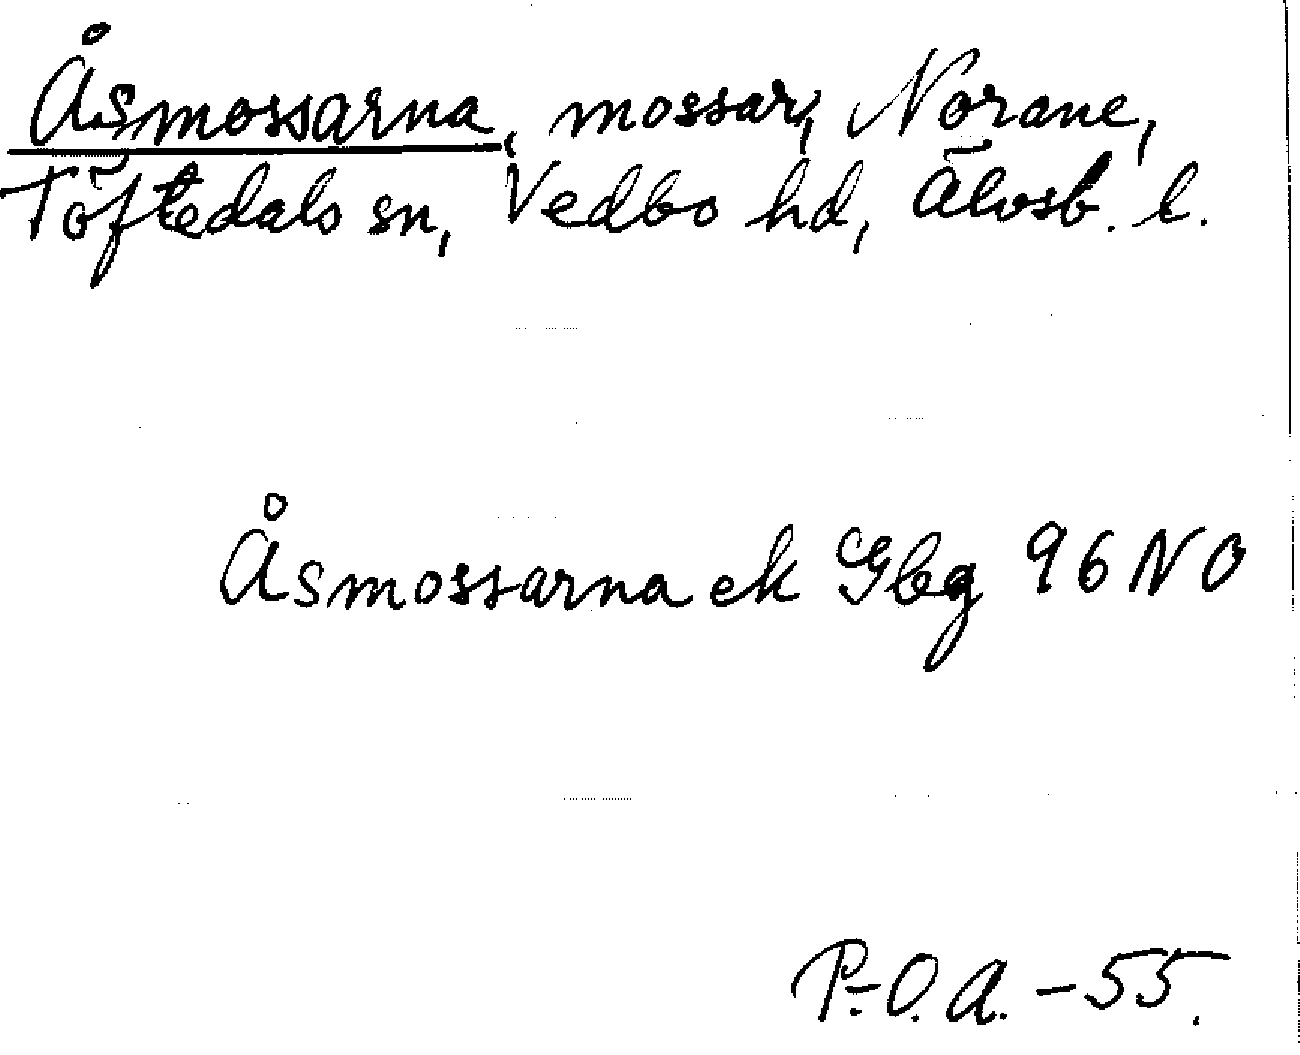 Åsmossarna, mossar, Norane,
Töftedals sn, Vedbo hd, Älvsb. l.
Åsmossarna ek Gbg 96 NO
P.-O. A. -55.